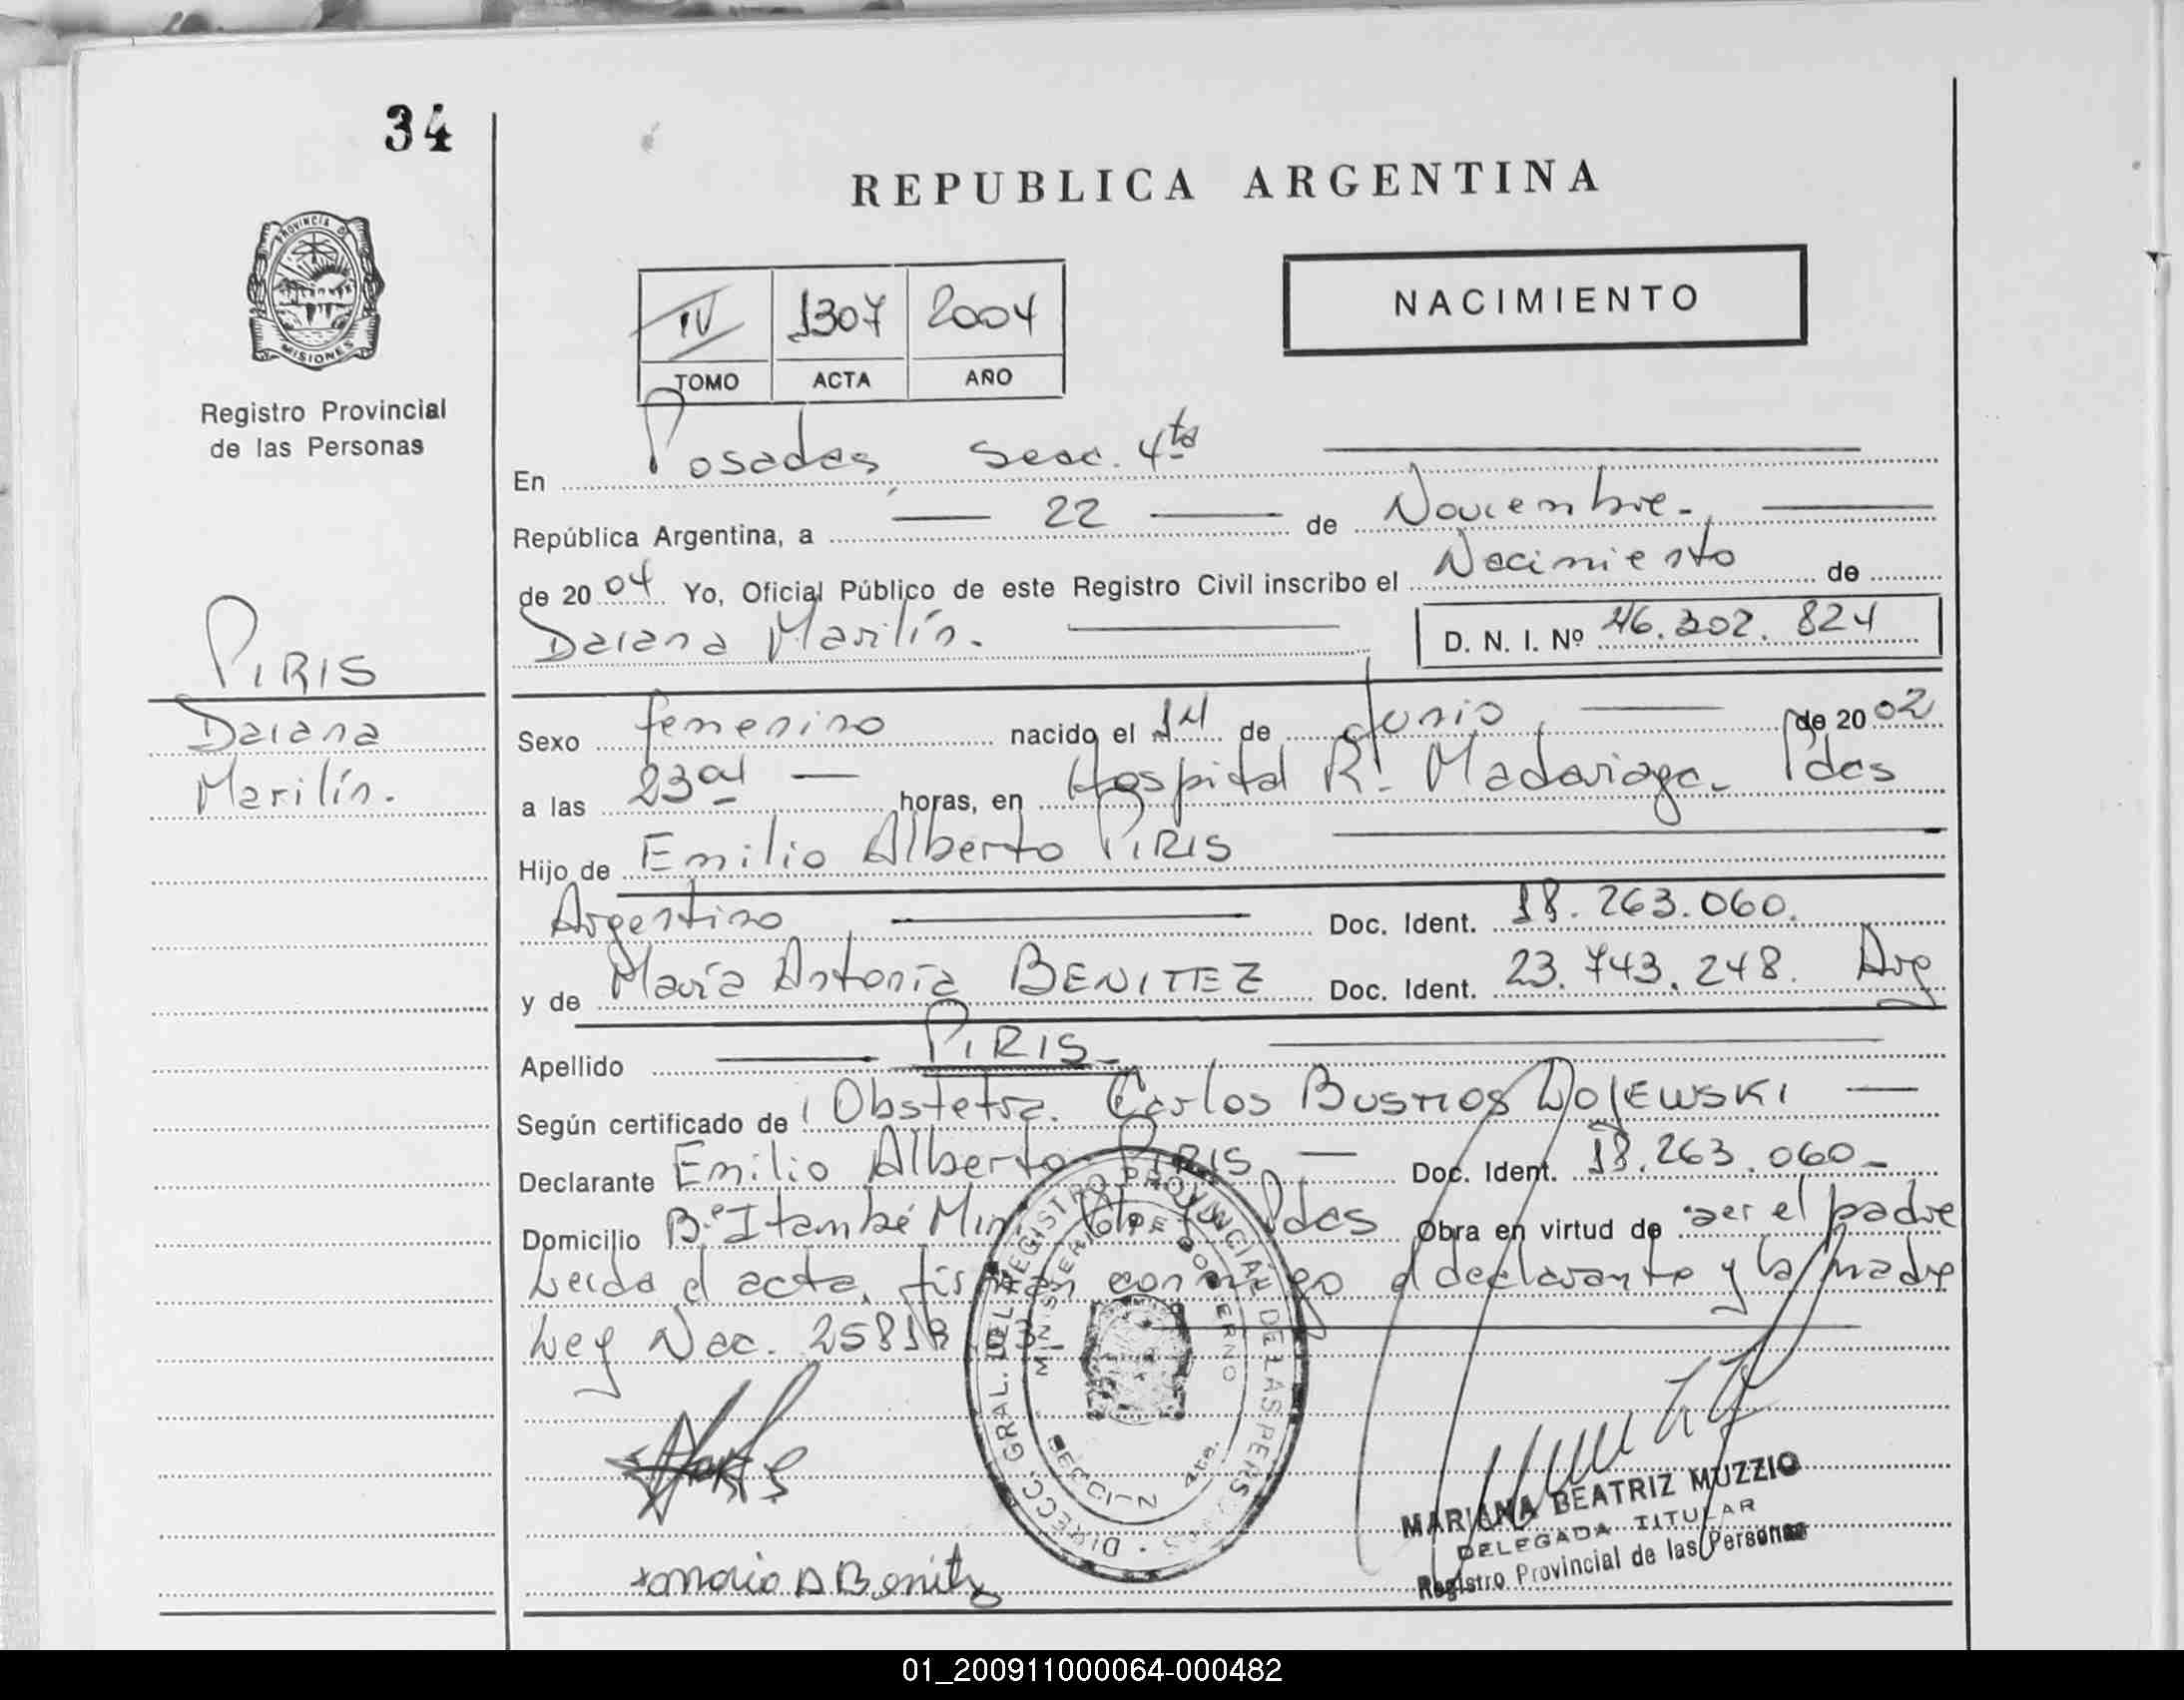 34
REPUBLICA ARGENTINA
PROVINCIA DE
MISIONES
Registro Provincial
de las Personas
IV 1307 2004
TOMO ACTA AÑO
NACIMIENTO
En Posadas, Secc. 4ta
República Argentina, a 22 de Noviembre.
de 2004 Yo, Oficial Público de este Registro Civil inscribo el Nacimiento de
Daiana Marilín.
D. N. I. Nº 46.202.824
PIRIS
Daiana
Marilín.
Sexo femenino nacido el 14 de Junio de 2002
a las 23 horas, en Hospital R. Madariaga. Pdas
Hijo de Emilio Alberto PIRIS
Argentino Doc. Ident. 18.263.060.
y de María Antonia BENITEZ Doc. Ident. 23.743.248. Arg
Apellido PIRIS
Según certificado de Obstetra. Carlos Bustos WOJEWSKI
Declarante Emilio Alberto PIRIS Doc. Ident. 18.263.060
Domicilio Bº Itambé Miní Pdas Obra en virtud de ser el padre
Leída el acta, firman conmigo el declarante y la madre
Ley Nac. 25818
DIRECC. GRAL. DEL REGISTRO PROVINCIAL DE LAS PERSONAS
MINISTERIO DE GOBIERNO
MARIANA BEATRIZ MUZZIO
DELEGADA TITULAR
Registro Provincial de las Personas
Maria A Benitz
01_200911000064-000482